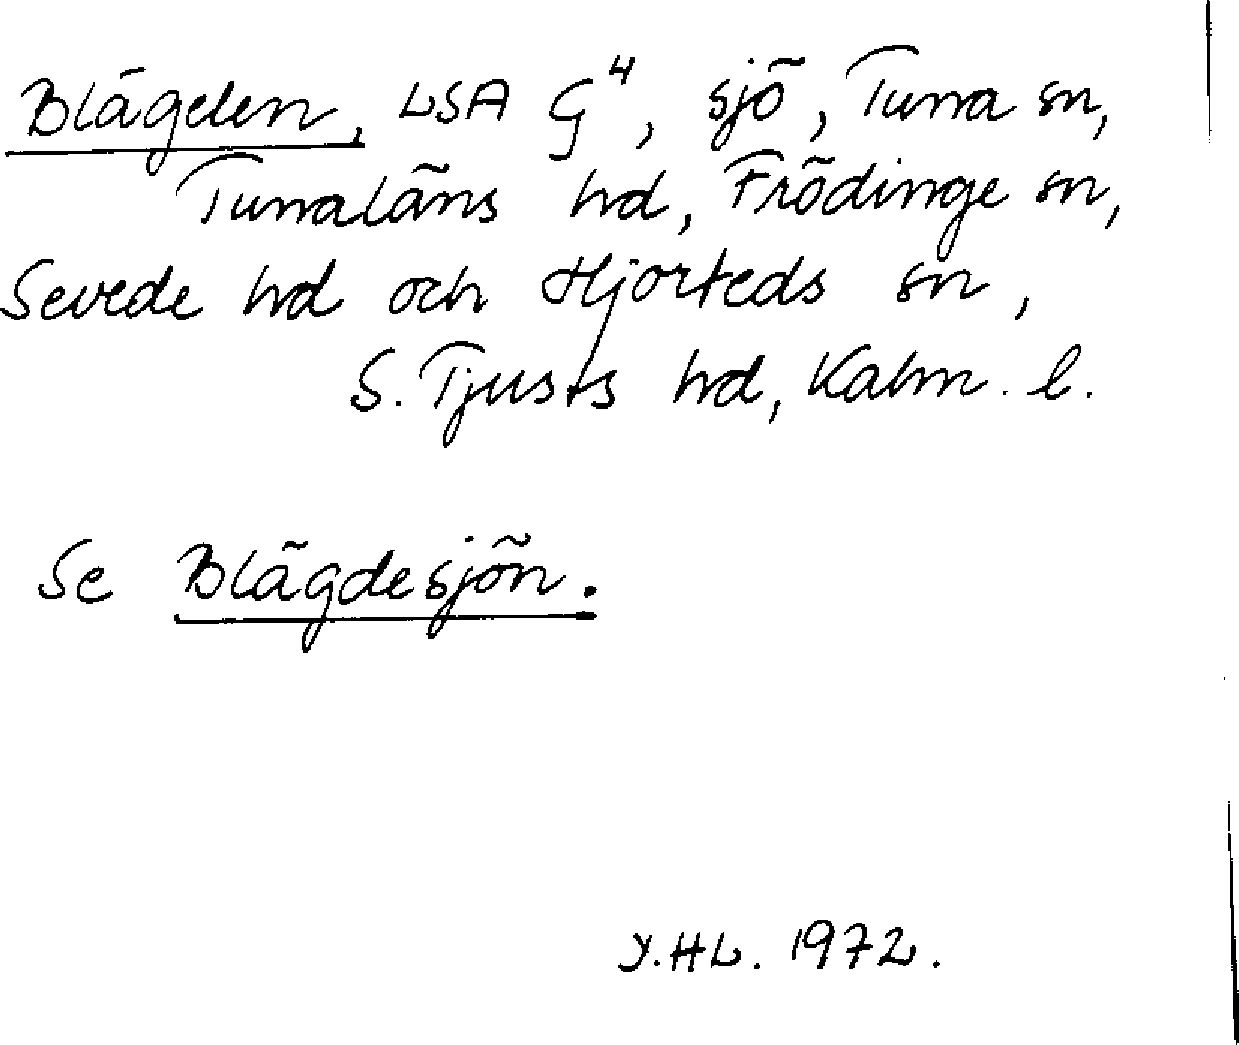 Blägden, LSA G⁴, sjö, Tuna sn,
Tunaläns hd, Frödinge sn,
Sevede hd och Hjorteds sn,
S. Tjusts hd, Kalm. l.
Se Blägdesjön.
Y.HL. 1972.